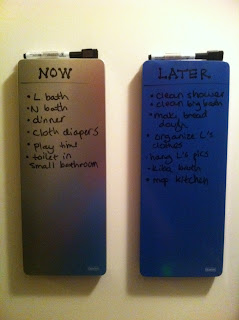 NOW
• L bath
• N bath
• dinner
• cloth diapers
• play time
• toilet in
small bathroom
LATER
• clean shower
• clean big bath
• make bread
dough
• organize L's
clothes
• hang L's pics
• bath
• mop kitchen